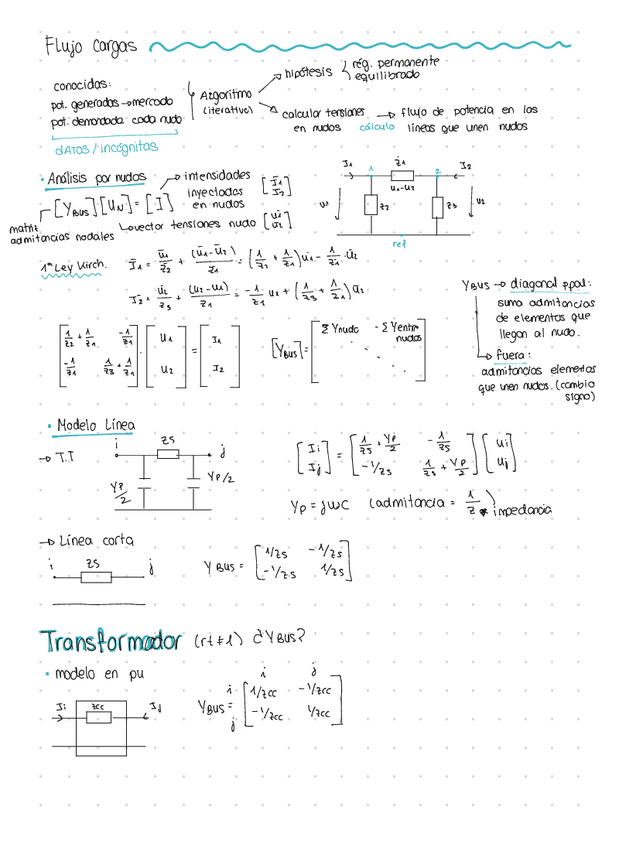 Flujo cargas
conocidas:
pot. generadas → mercado
pot. demandada cada nudo
dATOS / incógnitas
Algoritmo
(iterativo)
hipótesis
rég. permanente
equilibrado
calcular tensiones
en nudos
cálculo
flujo de potencia en las
líneas que unen nudos
• Análisis por nudos
intensidades
inyectadas
en nudos
[I1
I2]
[YBUS][UN] = [I]
matriz
admitancias nodales
vector tensiones nudo [U1
U2]
I1 1 Z1 2 I2
U1-U2
U1 Z2 Z3 U2
ref
1ª Ley Kirch. I1 = U1/Z2 + (U1-U2)/Z1 = (1/Z2 + 1/Z1)U1 - 1/Z1 · U2
I2 = U2/Z3 + (U2-U1)/Z1 = -1/Z1 U1 + (1/Z3 + 1/Z1)U2
[1/Z2 + 1/Z1 -1/Z1
-1/Z1 1/Z3 + 1/Z1] · [U1
U2] = [I1
I2]
[YBUS] = [Σ Ynudo - Σ Yentre
nudos]
YBUS → diagonal ppal:
suma admitancias
de elementos que
llegan al nudo.
→ fuera:
admitancias elementos
que unen nudos. (cambio
signo)
• Modelo Línea
→ T.T
i ZS j
YP/2 YP/2
[Ii
Ij] = [1/ZS + YP/2 -1/ZS
-1/ZS 1/ZS + YP/2] [Ui
Uj]
YP = jωC (admitancia = 1/Z) impedancia
→ Línea corta
i ZS j
YBUS = [1/ZS -1/ZS
-1/ZS 1/ZS]
Transformador (rt≠1) ¿YBUS?
• modelo en pu
Ii Zcc Ij
i j
YBUS = i [1/Zcc -1/Zcc
j -1/Zcc 1/Zcc]